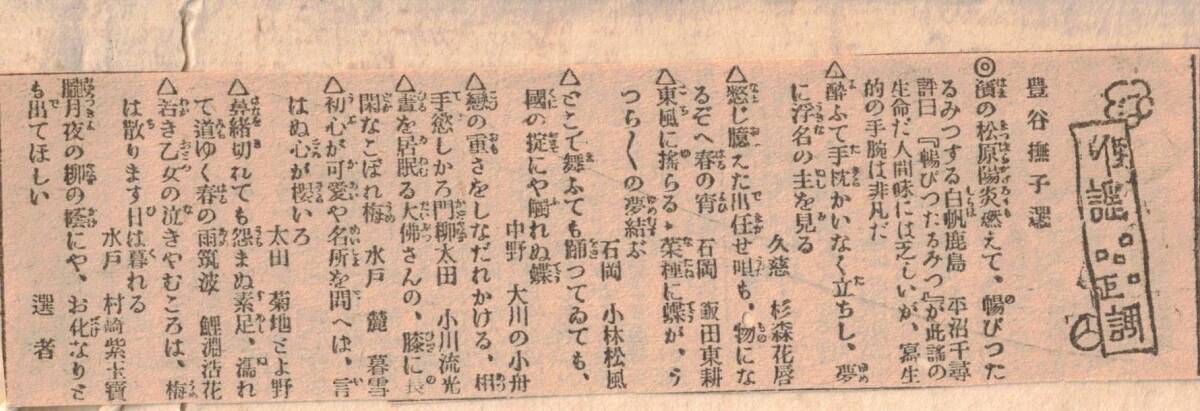 俚謡正調
豊谷撫子選
◎濱の松原陽炎燃えて、暢びつた
るみつする白帆鹿島 平沼千尋
評曰『暢びつたるみつ』が此謡の
生命だ人間味には乏しいが、寫生
的の手腕は非凡だ
△酔ふて手枕かいなく立ちし、夢
に浮名の主を見る
久慈 杉森花唇
△憖じ臆えた出任せ唄も、物にな
るぞへ春の宵 石岡 飯田東耕
△東風に擽らるゝ菜種に蝶が、う
つら〳〵の夢結ぶ
石岡 小林松風
△どこで舞ふても踊つてゐても、
國の掟にや觸れぬ蝶
中野 大川の小舟
△戀の重さをしなだれかける、相
手慾しかろ門柳太田 小川流光
△晝を居眠る大佛さんの、膝に長
閑なこぼれ梅 水戸 麓暮雪
△初心が可愛や名所を問へは、言
はぬ心が櫻いろ
太田 菊地とよ野
△鼻緒切れても怨まぬ素足、濡れ
て道ゆく春の雨筑波 鯉淵浩花
△若き乙女の泣きやむころは、梅
は散ります日は暮れる
水戸 村崎紫玉寳
朧月夜の柳の蔭にや、お化なりと
も出てほしい 選者